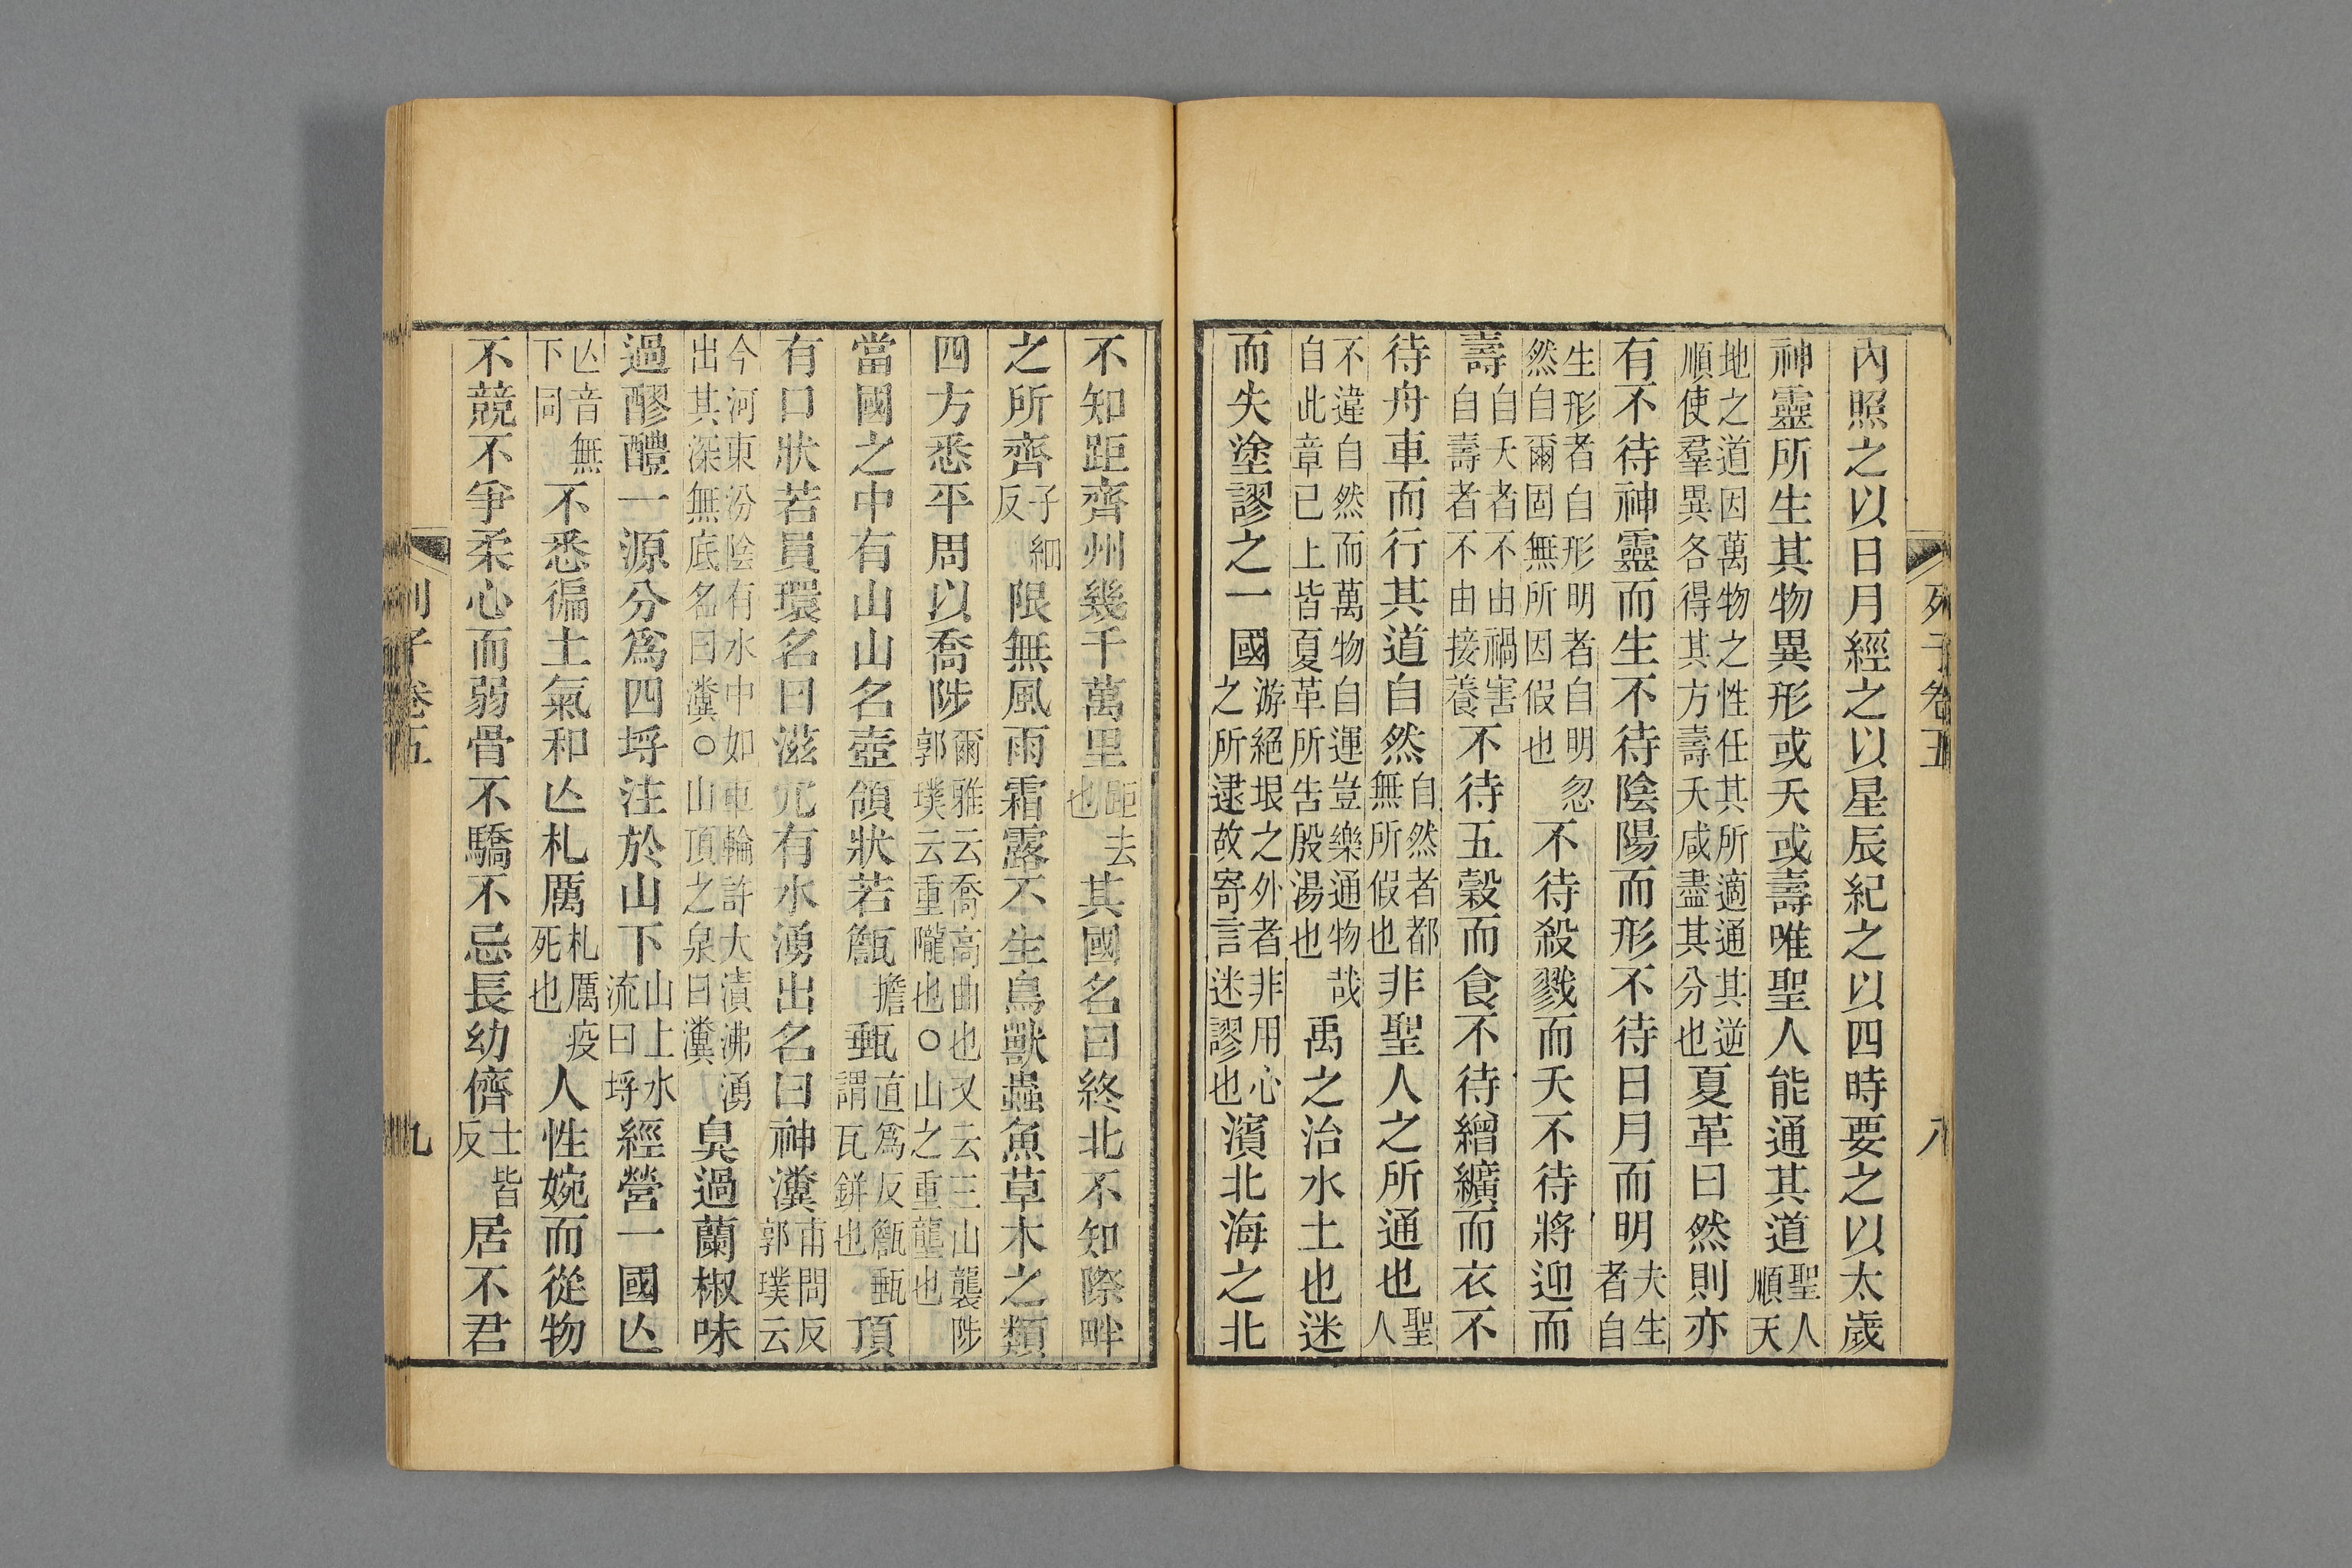 列子卷五　八
內照之以日月經之以星辰紀之以四時要之以太歲
神靈所生其物異形或夭或壽唯聖人能通其道聖人順天
地之道因萬物之性任其所適通其逆順使羣異各得其方壽夭咸盡其分也夏革曰然則亦
有不待神靈而生不待陰陽而形不待日月而明夫生者自
生形者自形明者自明忽然自爾固無所因假也不待殺戮而夭不待將迎而
壽自夭者不由禍害自壽者不由接養不待五穀而食不待繒纊而衣不
待舟車而行其道自然自然者都無所假也非聖人之所通也聖人
不違自然而萬物自運豈樂通物哉自此章已上皆夏革所告殷湯也禹之治水土也迷
而失塗謬之一國游絕垠之外者非用心之所逮故寄言迷謬也濱北海之北
不知距齊州幾千萬里距去也其國名曰終北不知際畔
之所齊子細反限無風雨霜露不生鳥獸蟲魚草木之類
四方悉平周以喬陟爾雅云喬高曲也又云三山襲陟郭璞云重隴也○山之重壟也
當國之中有山山名壺領狀若甔擔甀直爲反甔甀謂瓦缾也頂
有口狀若員環名曰滋穴有水湧出名曰神瀵甫問反郭璞云
今河東汾陰有水中如車輪許大濆沸湧出其深無底名曰瀵○山頂之泉曰瀵臭過蘭椒味
過醪醴一源分爲四埒注於山下山上水流曰埒經營一國亾
亾音無下同不悉徧土氣和亾札厲札厲疫死也人性婉而從物
不競不爭柔心而弱骨不驕不忌長幼儕士皆反居不君
列子卷五　九